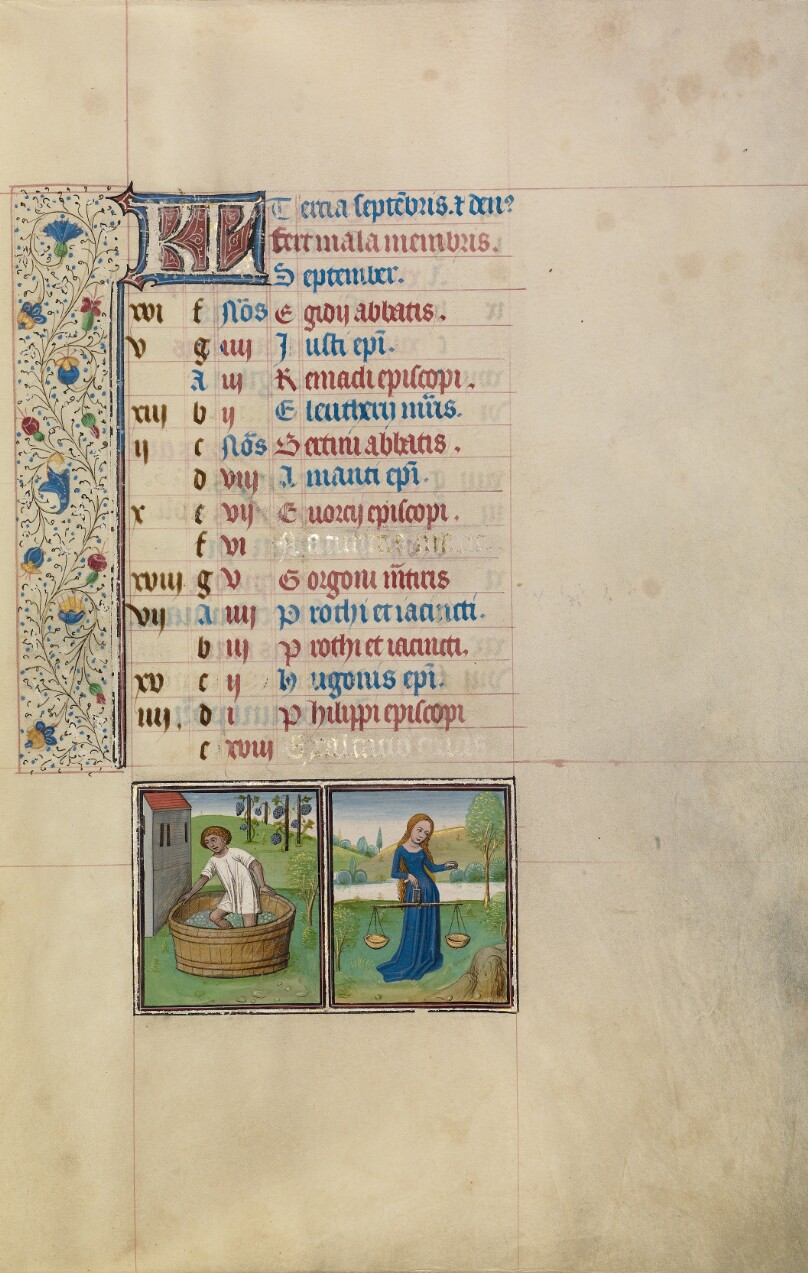 KL Tercia septēbris. ⁊ den᾽
fert mala membris.
September.
xvi f Nōs Egidij abbatis.
v g iiij Iusti epī.
A iij Remacli episcopi.
xiij b ij Eleutherij m̄ris.
ij c Nōs Bertini abbatis.
d viij Amanti epī.
x e vij Euorcij episcopi.
f vi
xviij g v Gorgoni m̄tiris
vij A iiij Prothi et iacincti.
b iij Prothi et iacincti.
xv c ij Hugonis epī.
iiij. d i Philippi episcopi
e xviij Exaltatio crucis